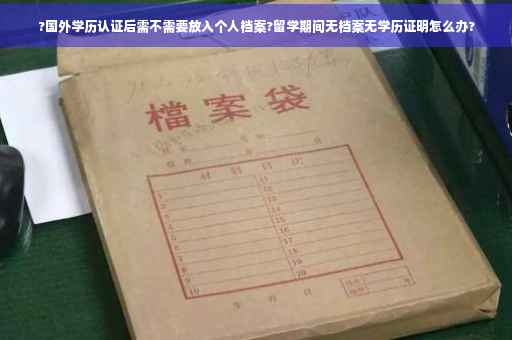 ?国外学历认证后需不需要放入个人档案?留学期间无档案无学历证明怎么办?
檔案袋
材料目次
1 11
2 12
3 13
4 14
5 15
6 16
7 17
8 18
9 19
10 20
年 月 日